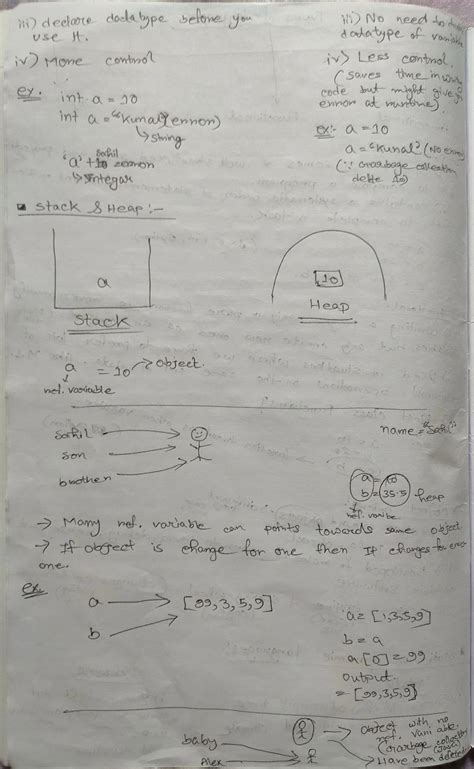 iii) declare datatype before you
use it.
iv) More control
ex.
int a = 10
int a = "Kunal" (error)
String
'a' + 10 error
Sahil
Integer
iii) No need to
datatype of variable
iv) Less control.
(saves time in writing
code but might give
error at runtime)
ex:- a = 10
a = "Kunal" (No error)
(∵ garbage collection
delte 10)
Stack & Heap :-
a
Stack
10
Heap
a = 10 → object.
ref. variable
name = "Sahil"
Sahil
son
brother
a = 10
b = 35.5 heap
ref. varibe
→ Many ref. variable can points towards same object
→ If object is change for one then It changes for
one.
ex.
a → [99,3,5,9]
b
a = [1,3,5,9]
b = a
a[0] = 99
output
= [99,3,5,9]
baby
Alex
Object with no
ref. variable.
(garbage collection
(Java)
Have been